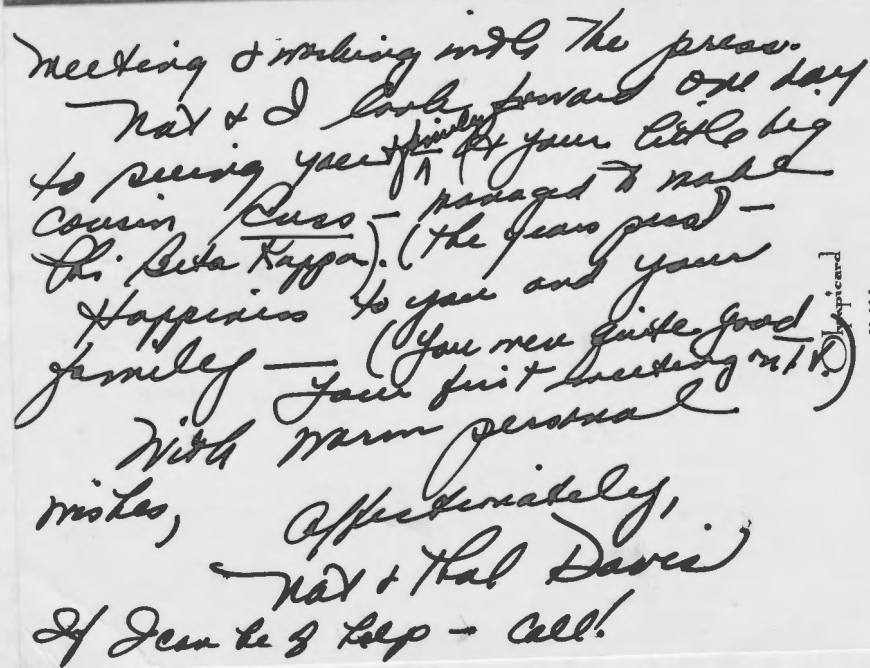 meeting & working with the press.
Nat & I look forward one day
to seeing you & family (& your little big
cousin Russ - managed to make
Phi Beta Kappa). (the years pass) -
Happiness to you and your
family — (You were quite good
your first meeting on T.V.)
With warm personal
wishes,
Affectionately,
Nat & Thal Davis
If I can be of help - call!